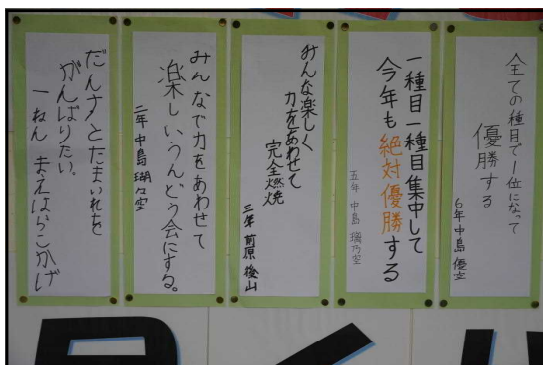 全ての種目で1位になって
優勝する
6年 中島 優空
一種目一種目集中して
今年も絶対優勝する
五年 中島 璃乃空
みんな楽しく
力をあわせて
完全燃焼
三年 前原 稜山
みんなで力をあわせて
楽しいうんどう会にする。
二年 中島 瑚々空
だんすとたまいれを
がんばりたい。
一ねん まえはらこかげ